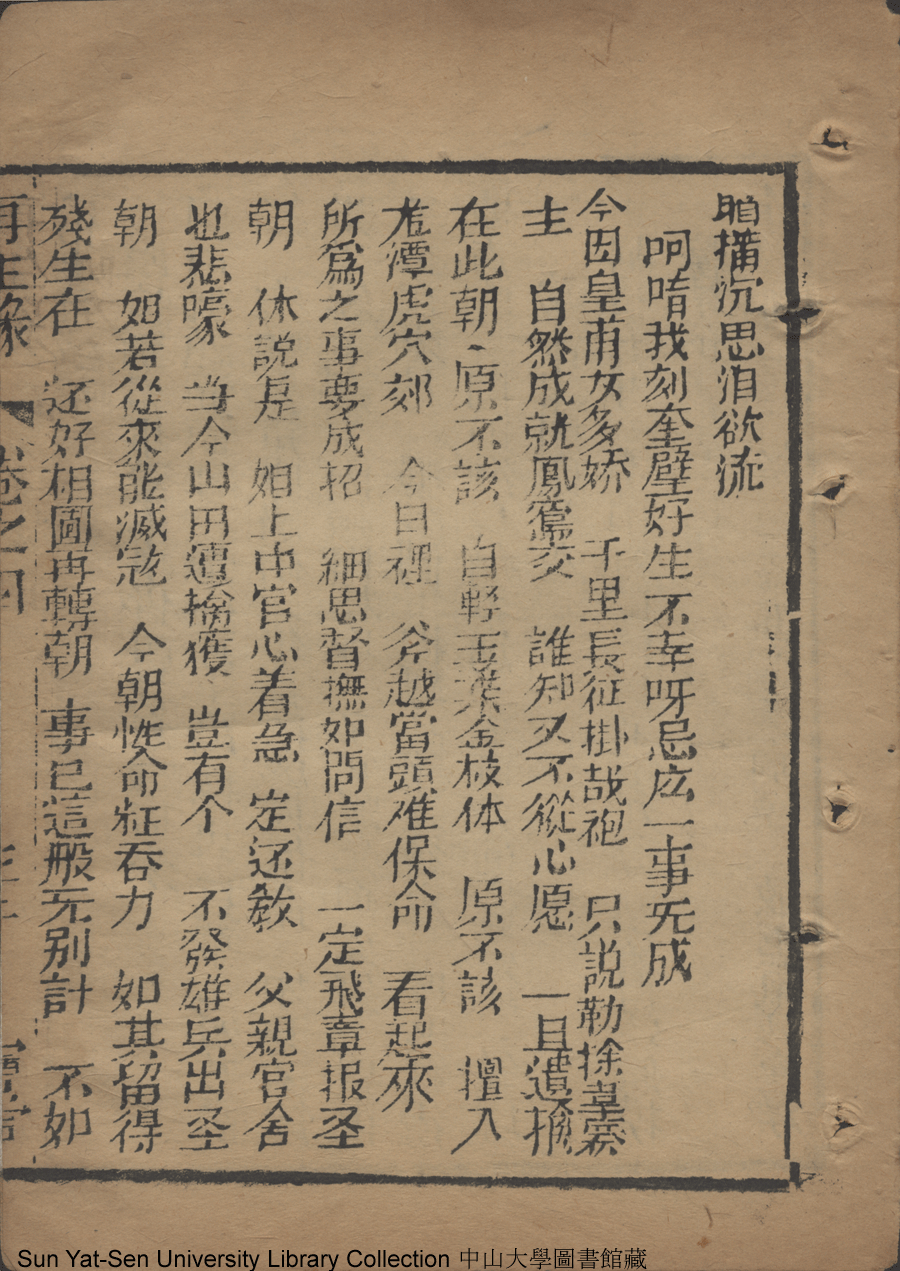 眉橫沉思泪欲流
呵唷我刻奎壁好生不幸呀忌庅一事旡成
今因皇甫女多娇 千里長征掛战袍 只説勒捈韋
主 自然成就鳳鸞交 誰知又不從心愿 一旦遭擒
在此朝、原不該 自輕玉葉金枝体 原不該 擅入
尨潭虎穴郊 今日裡 斧越當頭难保命 看起來
所爲之事要成招 細思督撫如問信 一定飛章报圣
朝 休説是 姐上中官心着急 定还教 父親官舍
也悲嚎 当今山田遭擒獲 豈有个 不發雄兵出圣
朝 如若從來能滅寇 今朝性命枉吞力 如其留得
殘生在 还好相圖再轉朝 事已這般旡别計 不如
再生緣 卷之四
Sun Yat-Sen University Library Collection 中山大學圖書館藏